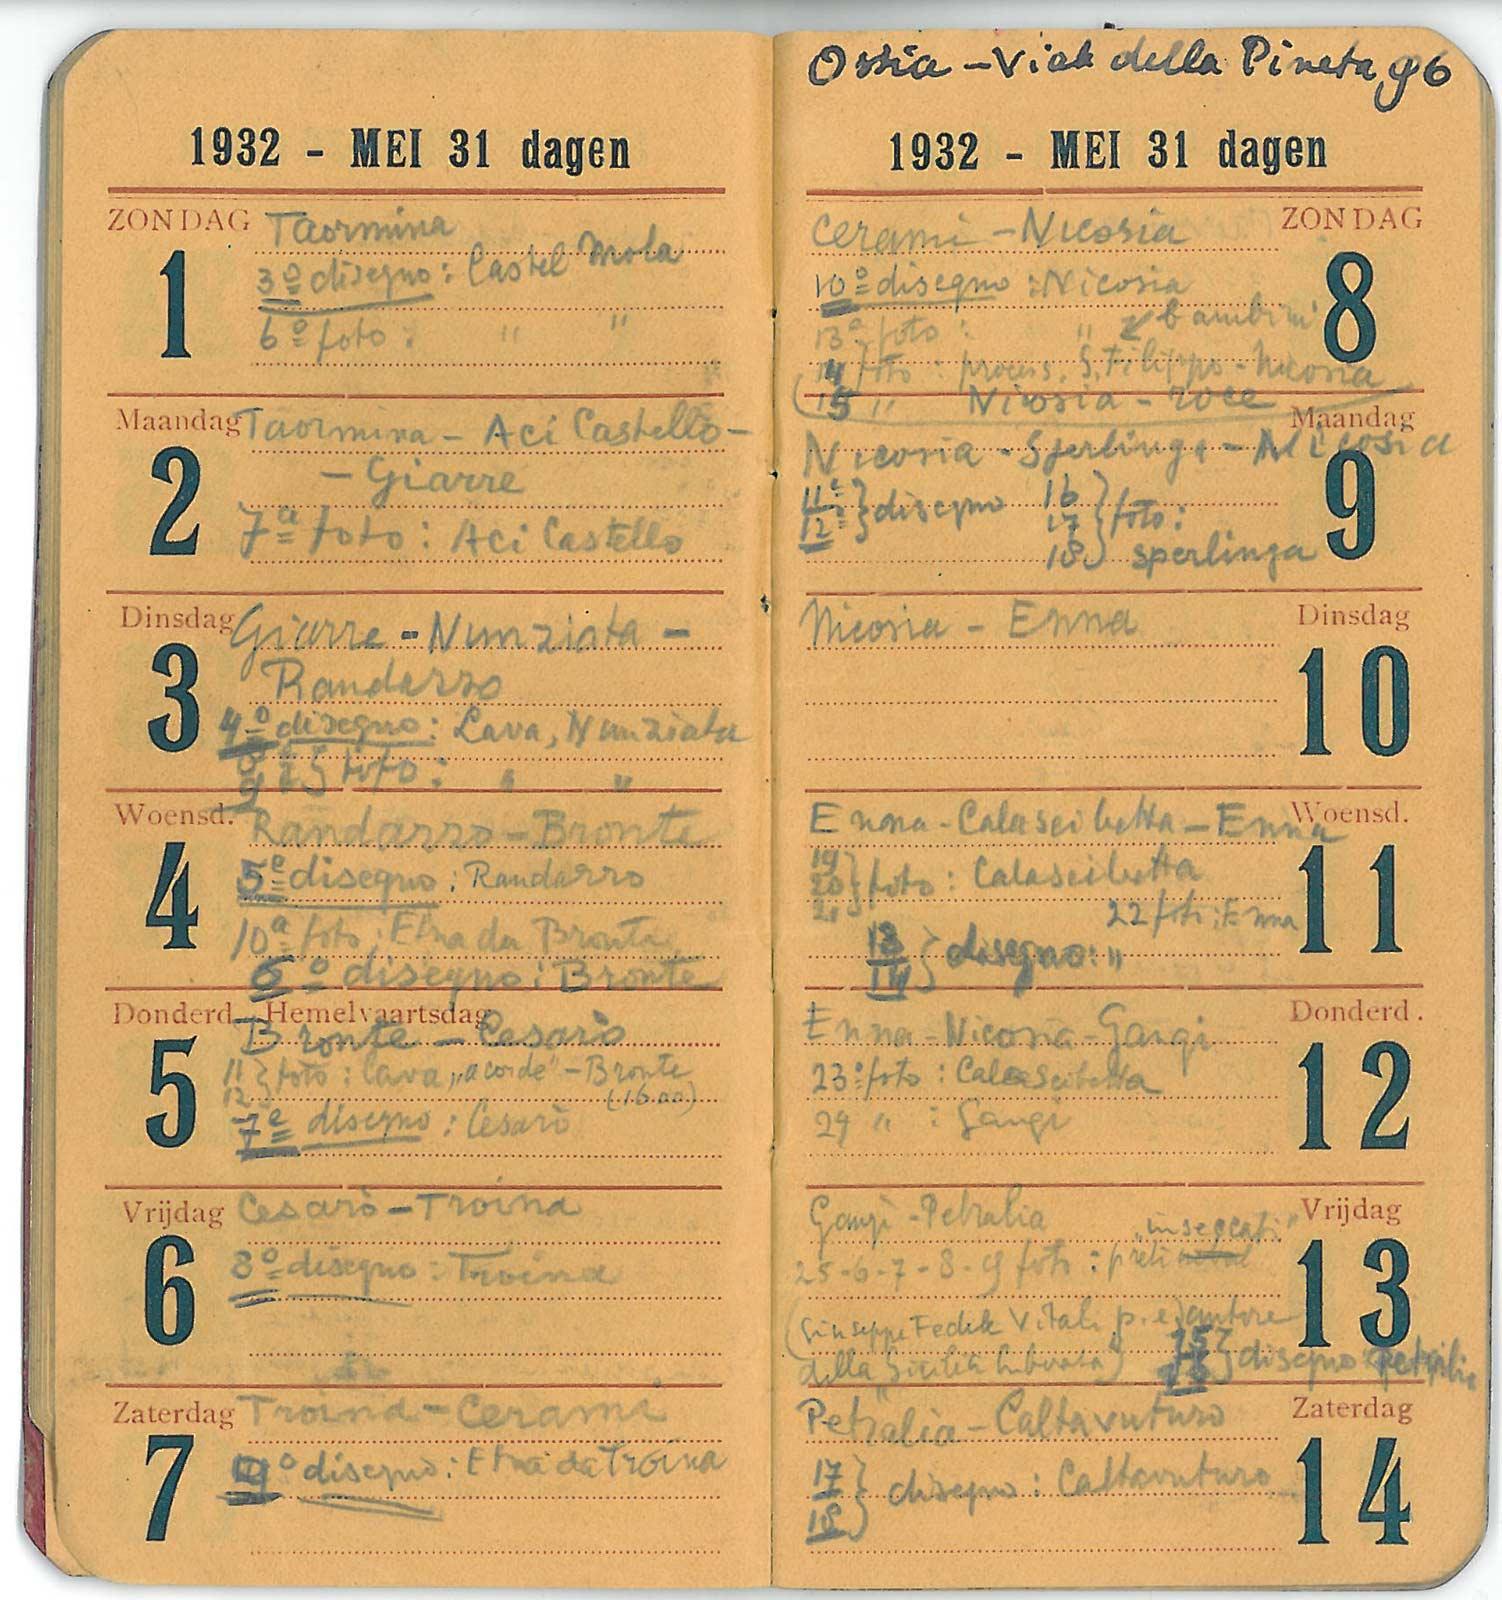 1932 - MEI 31 dagen
ZONDAG
1
Taormina
3º disegno: Castel Mola
6º foto: " "
Maandag
2
Taormina - Aci Castello -
- Giarre
7ª foto: Aci Castello
Dinsdag
3
Giarre - Nunziata -
Randazzo
4º disegno: Lava, Nunziata
8
9 } foto: " "
Woensd.
4
Randazzo - Bronte
5º disegno: Randazzo
10ª foto: Etna da Bronte
6º disegno: Bronte
Donderd. Hemelvaartsdag
5
Bronte - Cesarò
11
12 } foto: Lava „a corde" - Bronte
7º disegno: Cesarò
Vrijdag
6
Cesarò - Troina
8º disegno: Troina
Zaterdag
7
Troina - Cerami
9º disegno: Etna da Troina
Ostia - Viale della Pineta 96
1932 - MEI 31 dagen
ZONDAG
8
Cerami - Nicosia
10º disegno: Nicosia
13ª foto: " bambini
14 foto: process. S. Filippo - Nicosia
15 " Nicosia - roce
Maandag
9
Nicosia - Sperlinga - Nicosia
11º
12º } disegno
16
17
18 } foto:
sperlinga
Dinsdag
10
Nicosia - Enna
Woensd.
11
Enna - Calascibetta - Enna
19
20
21 } foto: Calascibetta
22 foto: Enna
13
14 } disegno: "
Donderd.
12
Enna - Nicosia - Gangi
23ª foto: Calascibetta
24 " : Gangi
Vrijdag
13
Gangi - Petralia
25-6-7-8-9 foto: preti „inseccati"
(Giuseppe Fedele Vitale p. e. autore
della „Sicilia
15
16 } disegno Petralia
Zaterdag
14
Petralia - Caltavuturo
17
18 } disegno: Caltavuturo